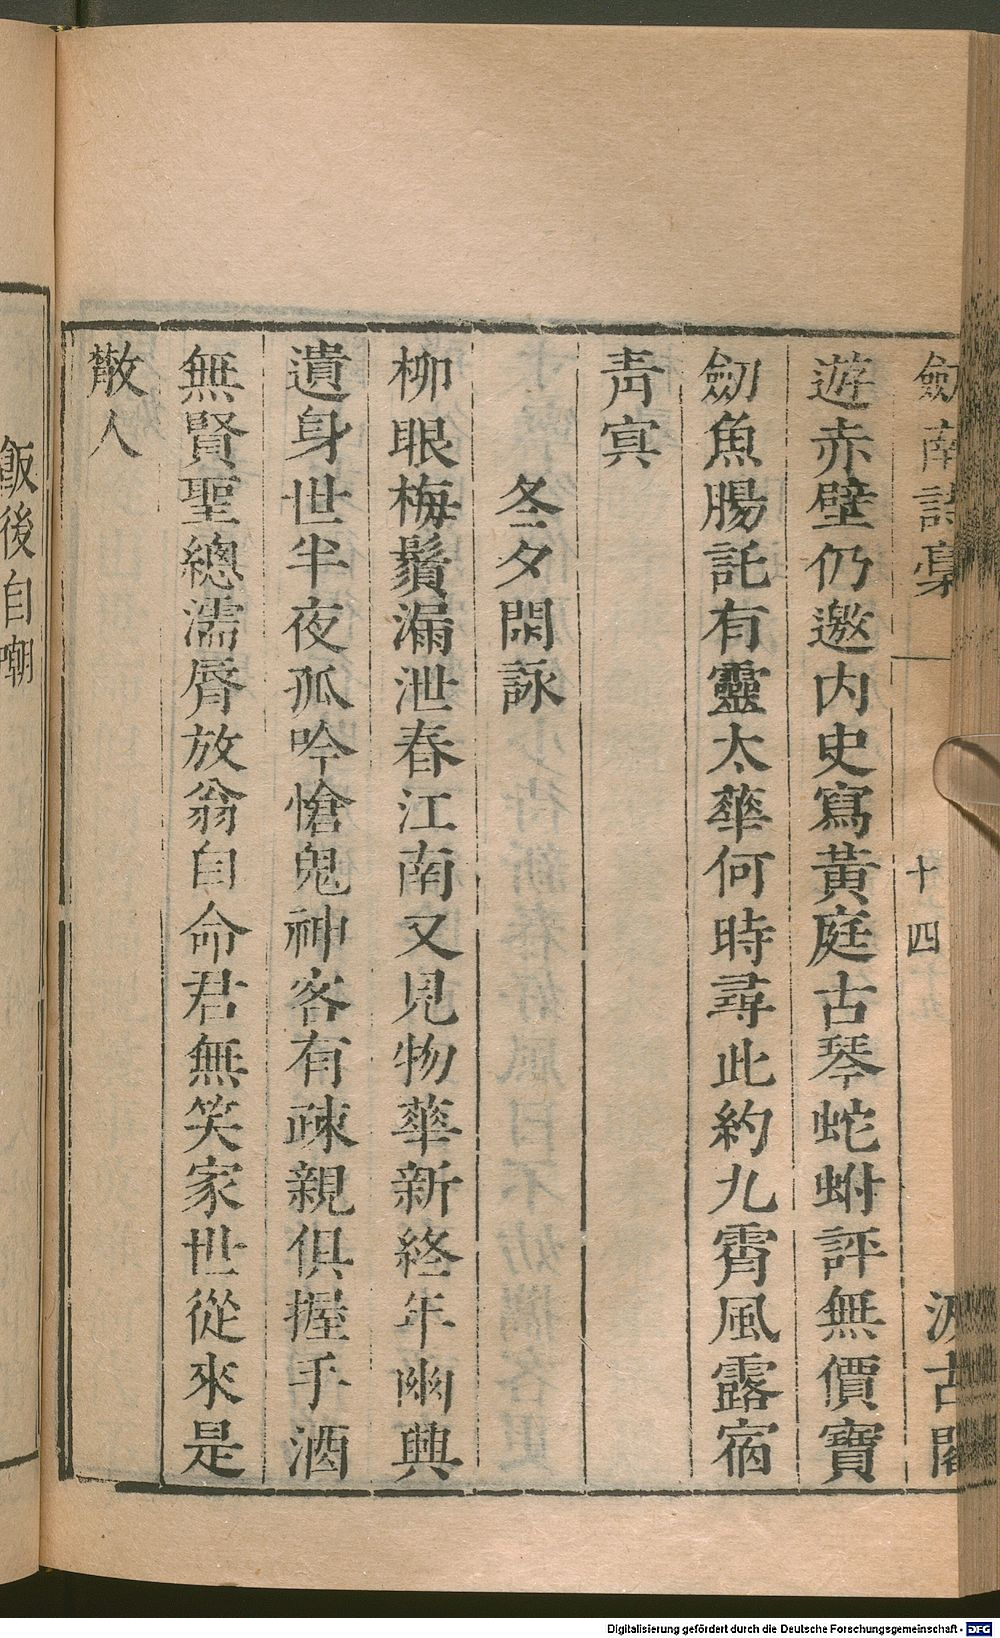 劍南詩稾
十四
汲古閣
遊赤壁仍邀内史寫黃庭古琴蛇蚹評無價寶
劒魚腸託有靈太華何時尋此約九霄風露宿
靑㝠
冬夕閑詠
柳眼梅鬚漏泄春江南又見物華新終年幽興
遺身世半夜孤吟愴鬼神客有疎親俱握手酒
無賢聖總濡脣放翁自命君無笑家世從來是
散人
飯後自嘲
Digitalisierung gefördert durch die Deutsche Forschungsgemeinschaft - DFG